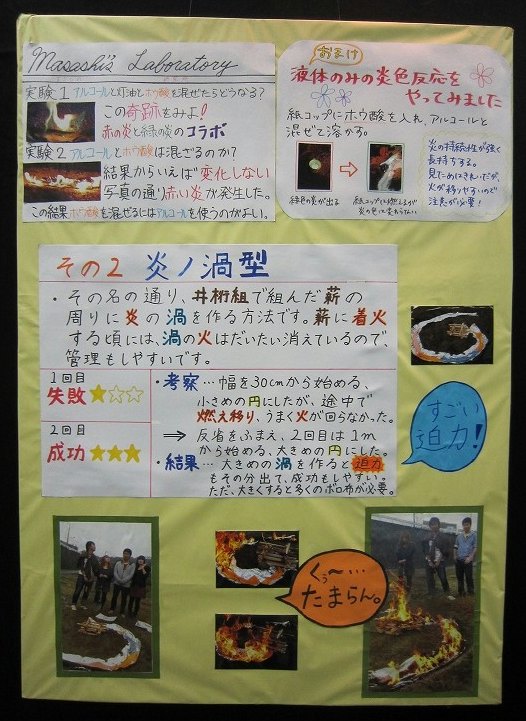 Masashi's Laboratory
実験1 アルコールと灯油とホウ酸を混ぜたらどうなる?
この奇跡をみよ!
赤の炎と緑の炎のコラボ
実験2 アルコールとホウ酸は混ざるのか?
結果からいえば変化しない
写真の通り赤い炎が発生した。
この結果ホウ酸を混ぜるにはアルコールを使うのがよい。
おまけ
液体のみの炎色反応を
やってみました
紙コップにホウ酸を入れ、アルコールと
混ぜて溶かす。
緑色の炎が出る
炎の持続性が強く
長持ちする。
見ためはきれいだが、
火が移りやすいので
注意が必要!
その2 炎ノ渦型
・その名の通り、井桁組で組んだ薪の
周りに炎の渦を作る方法です。薪に着火
する頃には、渦の火はだいたい消えているので、
管理もしやすいです。
1回目
失敗★☆☆
2回目
成功★★★
・考察…幅を30cmから始める、
小さめの円にしたが、途中で
燃え移り、うまく火が回らなかった。
⇒ 反省をふまえ、2回目は1m
から始める、大きめの円にした。
・結果…大きめの渦を作ると迫力
もその分出て、成功もしやすい。
ただ、大きくすると多くのボロ布が必要。
すごい
迫力!
くぅ〜…
たまらん。